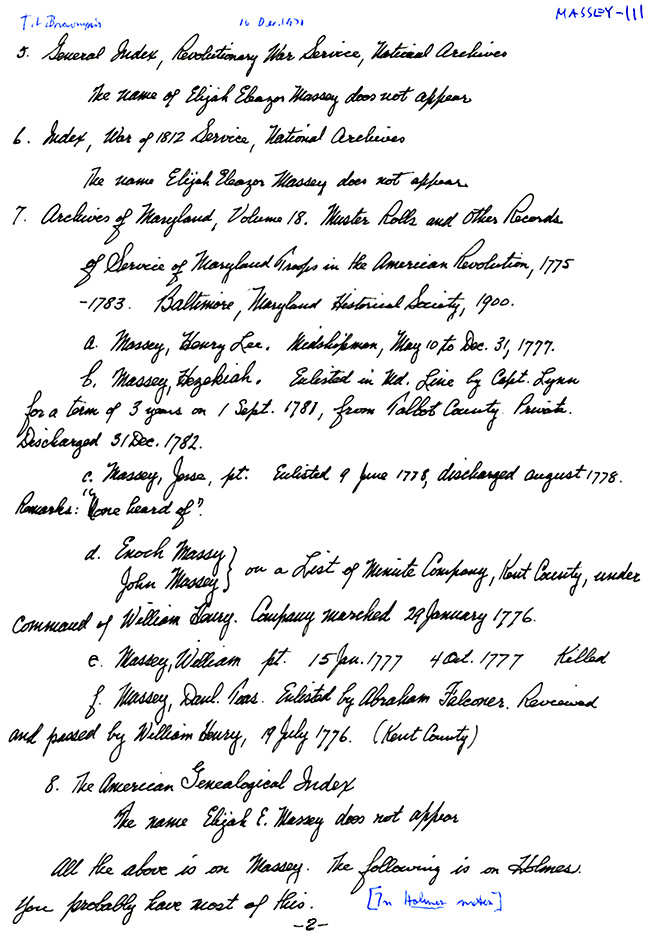 10 Dec. 1971
MASSEY-III
5. General Index, Revolutionary War Service, National Archives
The name of Elijah Eleazor Massey does not appear
6. Index, War of 1812 Service, National Archives
The name Elijah Eleazor Massey does not appear
7. Archives of Maryland, Volume 18. Muster Rolls and Other Records
of Service of Maryland Troops in the American Revolution, 1775
-1783. Baltimore, Maryland Historical Society, 1900.
a. Massey, Henry Lee. Midshipman, May 10 to Dec. 31, 1777.
b. Massey, Hezekiah. Enlisted in Md. Line by Capt. Lynn
for a term of 3 years on 1 Sept. 1781, from Talbot County. Private.
Discharged 31 Dec. 1782.
c. Massey, Jesse, pt. Enlisted 9 June 1778, discharged august 1778.
Remarks: "None heard of".
d. Enoch Massy
John Massey } on a List of Minute Company, Kent County, under
command of William Henry. Company marched 29 January 1776.
e. Massey, William pt. 15 Jan. 1777 4 Oct. 1777 Killed
f. Massey, Danl. Toas. Enlisted by Abraham Falconer. Reviewed
and passed by William Henry, 19 July 1776. (Kent County)
8. The American Genealogical Index
The name Elijah E. Massey does not appear
All the above is on Massey. The following is on Holmes.
You probably have most of this. [In Holmes notes]
-2-